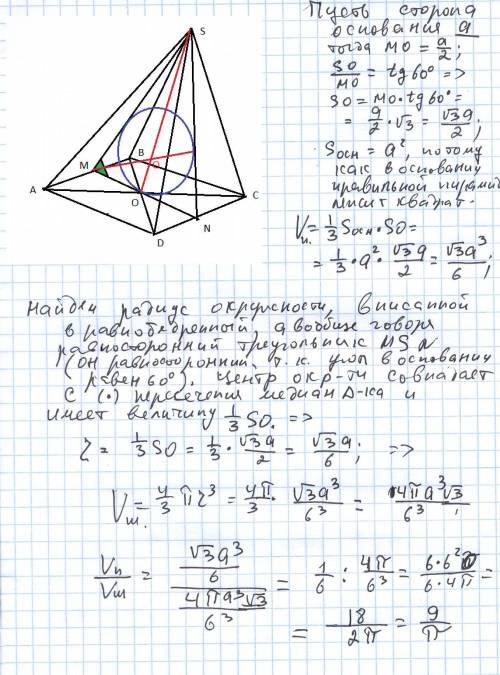 S
M
B
O
A
O
C
N
D
Пусть сторона
основания a
тогда MO = a/2;
SO/MO = tg60° =>
SO = MO·tg60° =
= a/2 · √3 = √3a/2;
Sосн = a², потому
как в основании
правильной пирамид
лисит квадрат.
Vп. = 1/3 Sосн · SO =
= 1/3 · a² · √3a/2 = √3a³/6;
Найдём радиус окружности, вписанной
в равнобедренный, а вообще говоря
равносторонний треугольник MSN
(он равносторонний, т.к. угол в основании
равен 60°). Центр окр-ти совпадает
с (·) пересечения медиан Δ-ка и
имеет величину 1/3 SO. =>
r = 1/3 SO = 1/3 · √3a/2 = √3a/6; =>
Vш. = 4/3 πr³ = 4π/3 · √3a³/6³ = 4πa³√3/6³;
Vп/Vш = (√3a³/6)/(4πa³√3/6³) = 1/6 : 4π/6³ = 6·6²/6·4π =
= 18/2π = 9/π